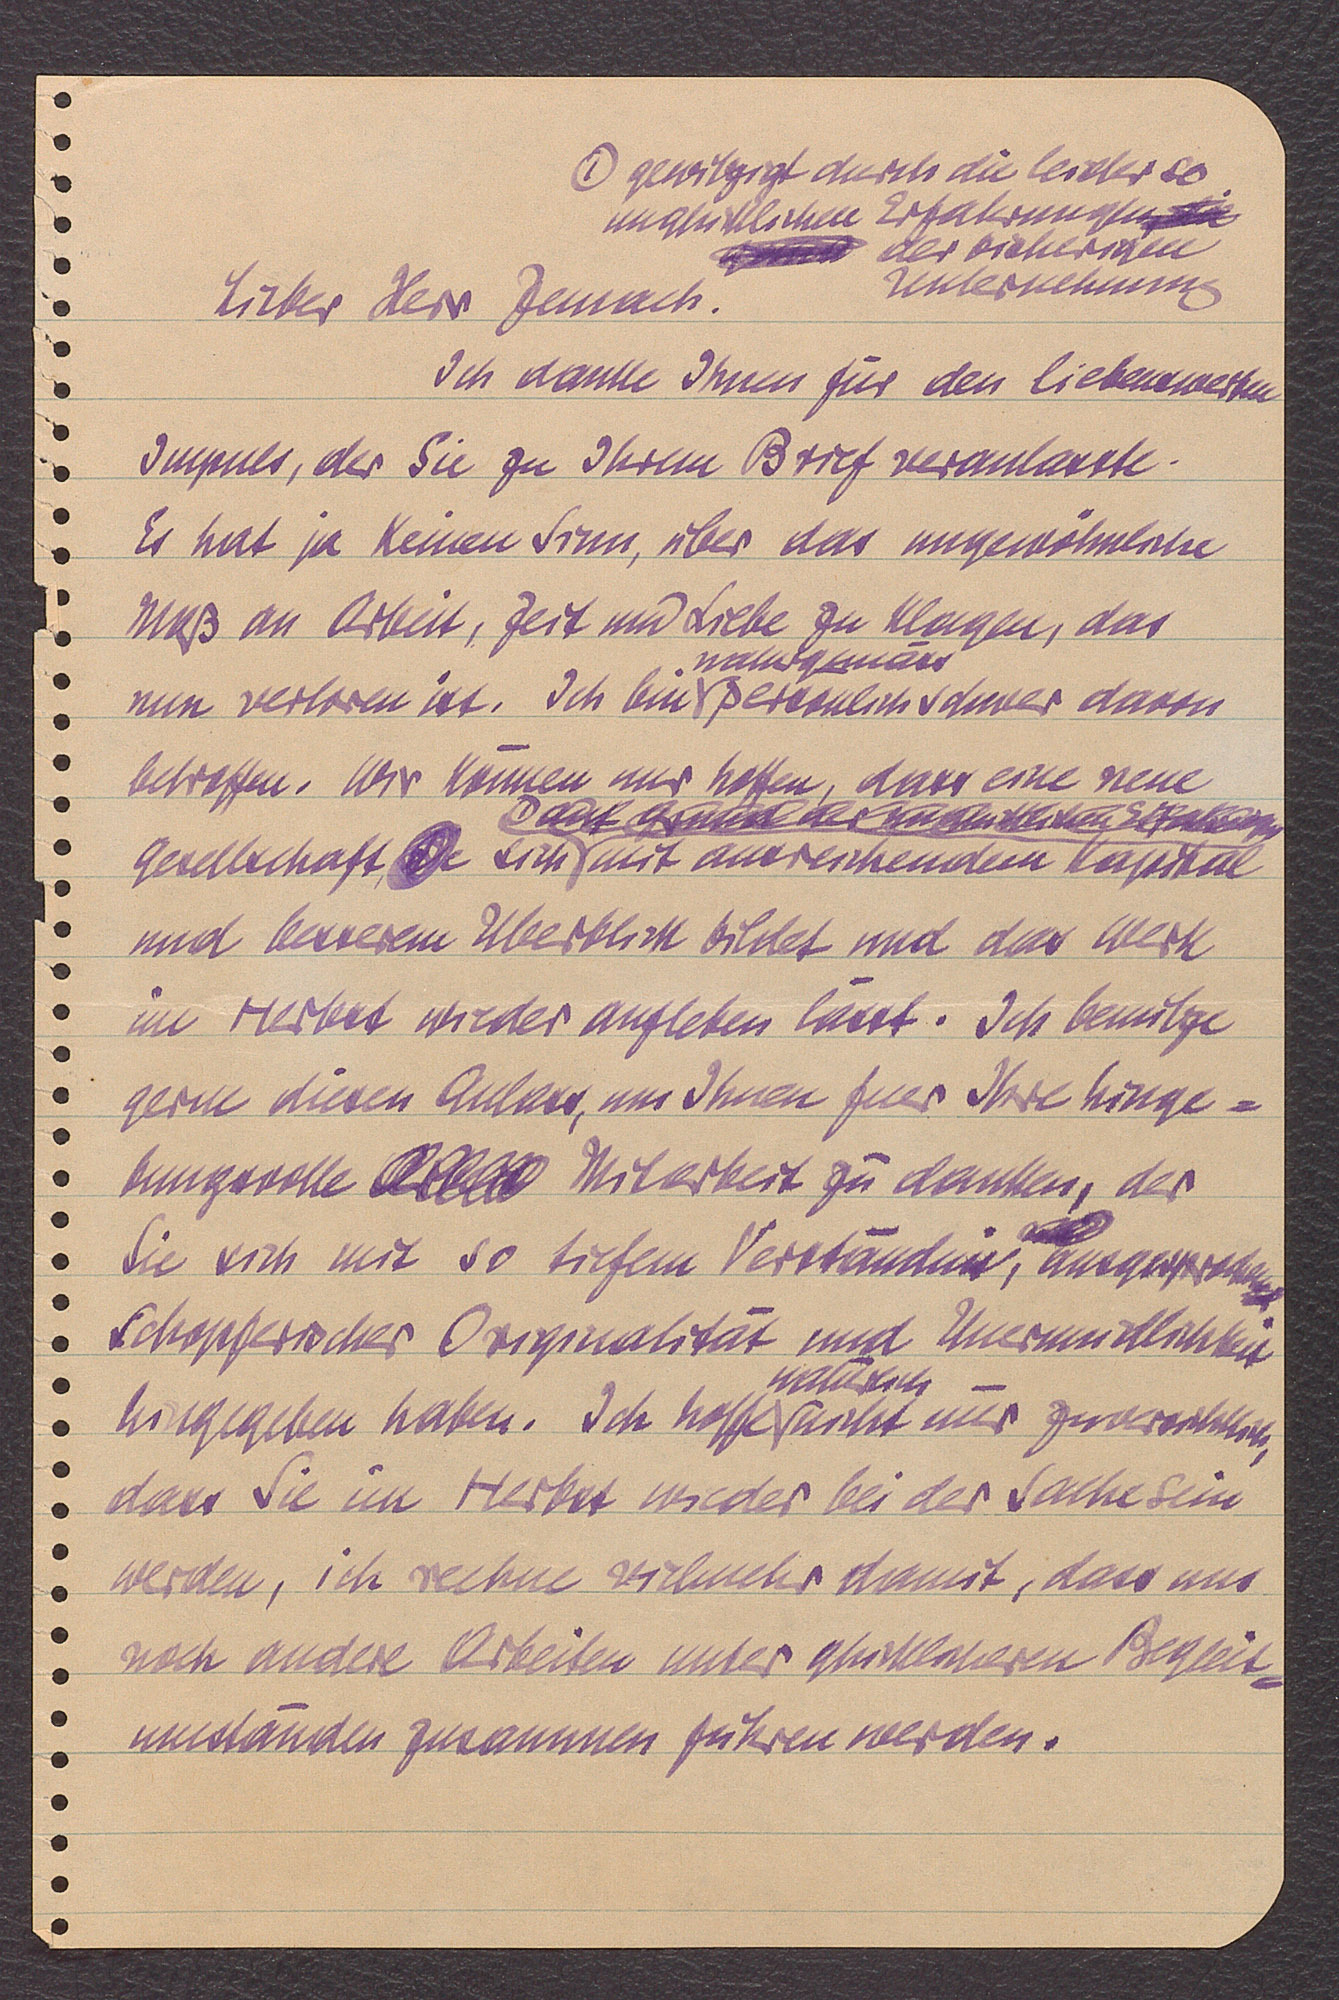 ① gewitzigt durch die leider so
unglücklichen Erfahrungen
der bisherigen
Unternehmung
Lieber Herr Zemach.
Ich danke Ihnen für den liebenswerten
Impuls, der Sie zu Ihrem Brief veranlasste.
Es hat ja keinen Sinn, über das ungewöhnliche
Maß an Arbeit, Zeit und Liebe zu klagen, das
naturgemäss
nun verloren ist. Ich bin persönlich schwer davon
betroffen. Wir können nur hoffen, dass eine neue
① auf Grund der unglücklichen Erfahrungen
Gesellschaft, die sich mit ausreichendem Kapital
und besserem Überblick bildet und das Werk
im Herbst wieder aufleben lässt. Ich benütze
gerne diesen Anlass, um Ihnen fuer Ihre hinge=
bungsvolle Arbeit Mitarbeit zu danken, der
Sie sich mit so tiefem Verständnis, ausgesprochener
schöpferischer Originalität und Unermüdlichkeit
natürlich
hingegeben haben. Ich hoffe nicht nur zuversichtlich,
dass Sie im Herbst wieder bei der Sache sein
werden, ich rechne vielmehr damit, dass uns
noch andere Arbeiten unter glücklicheren Begleit=
umständen zusammen führen werden.